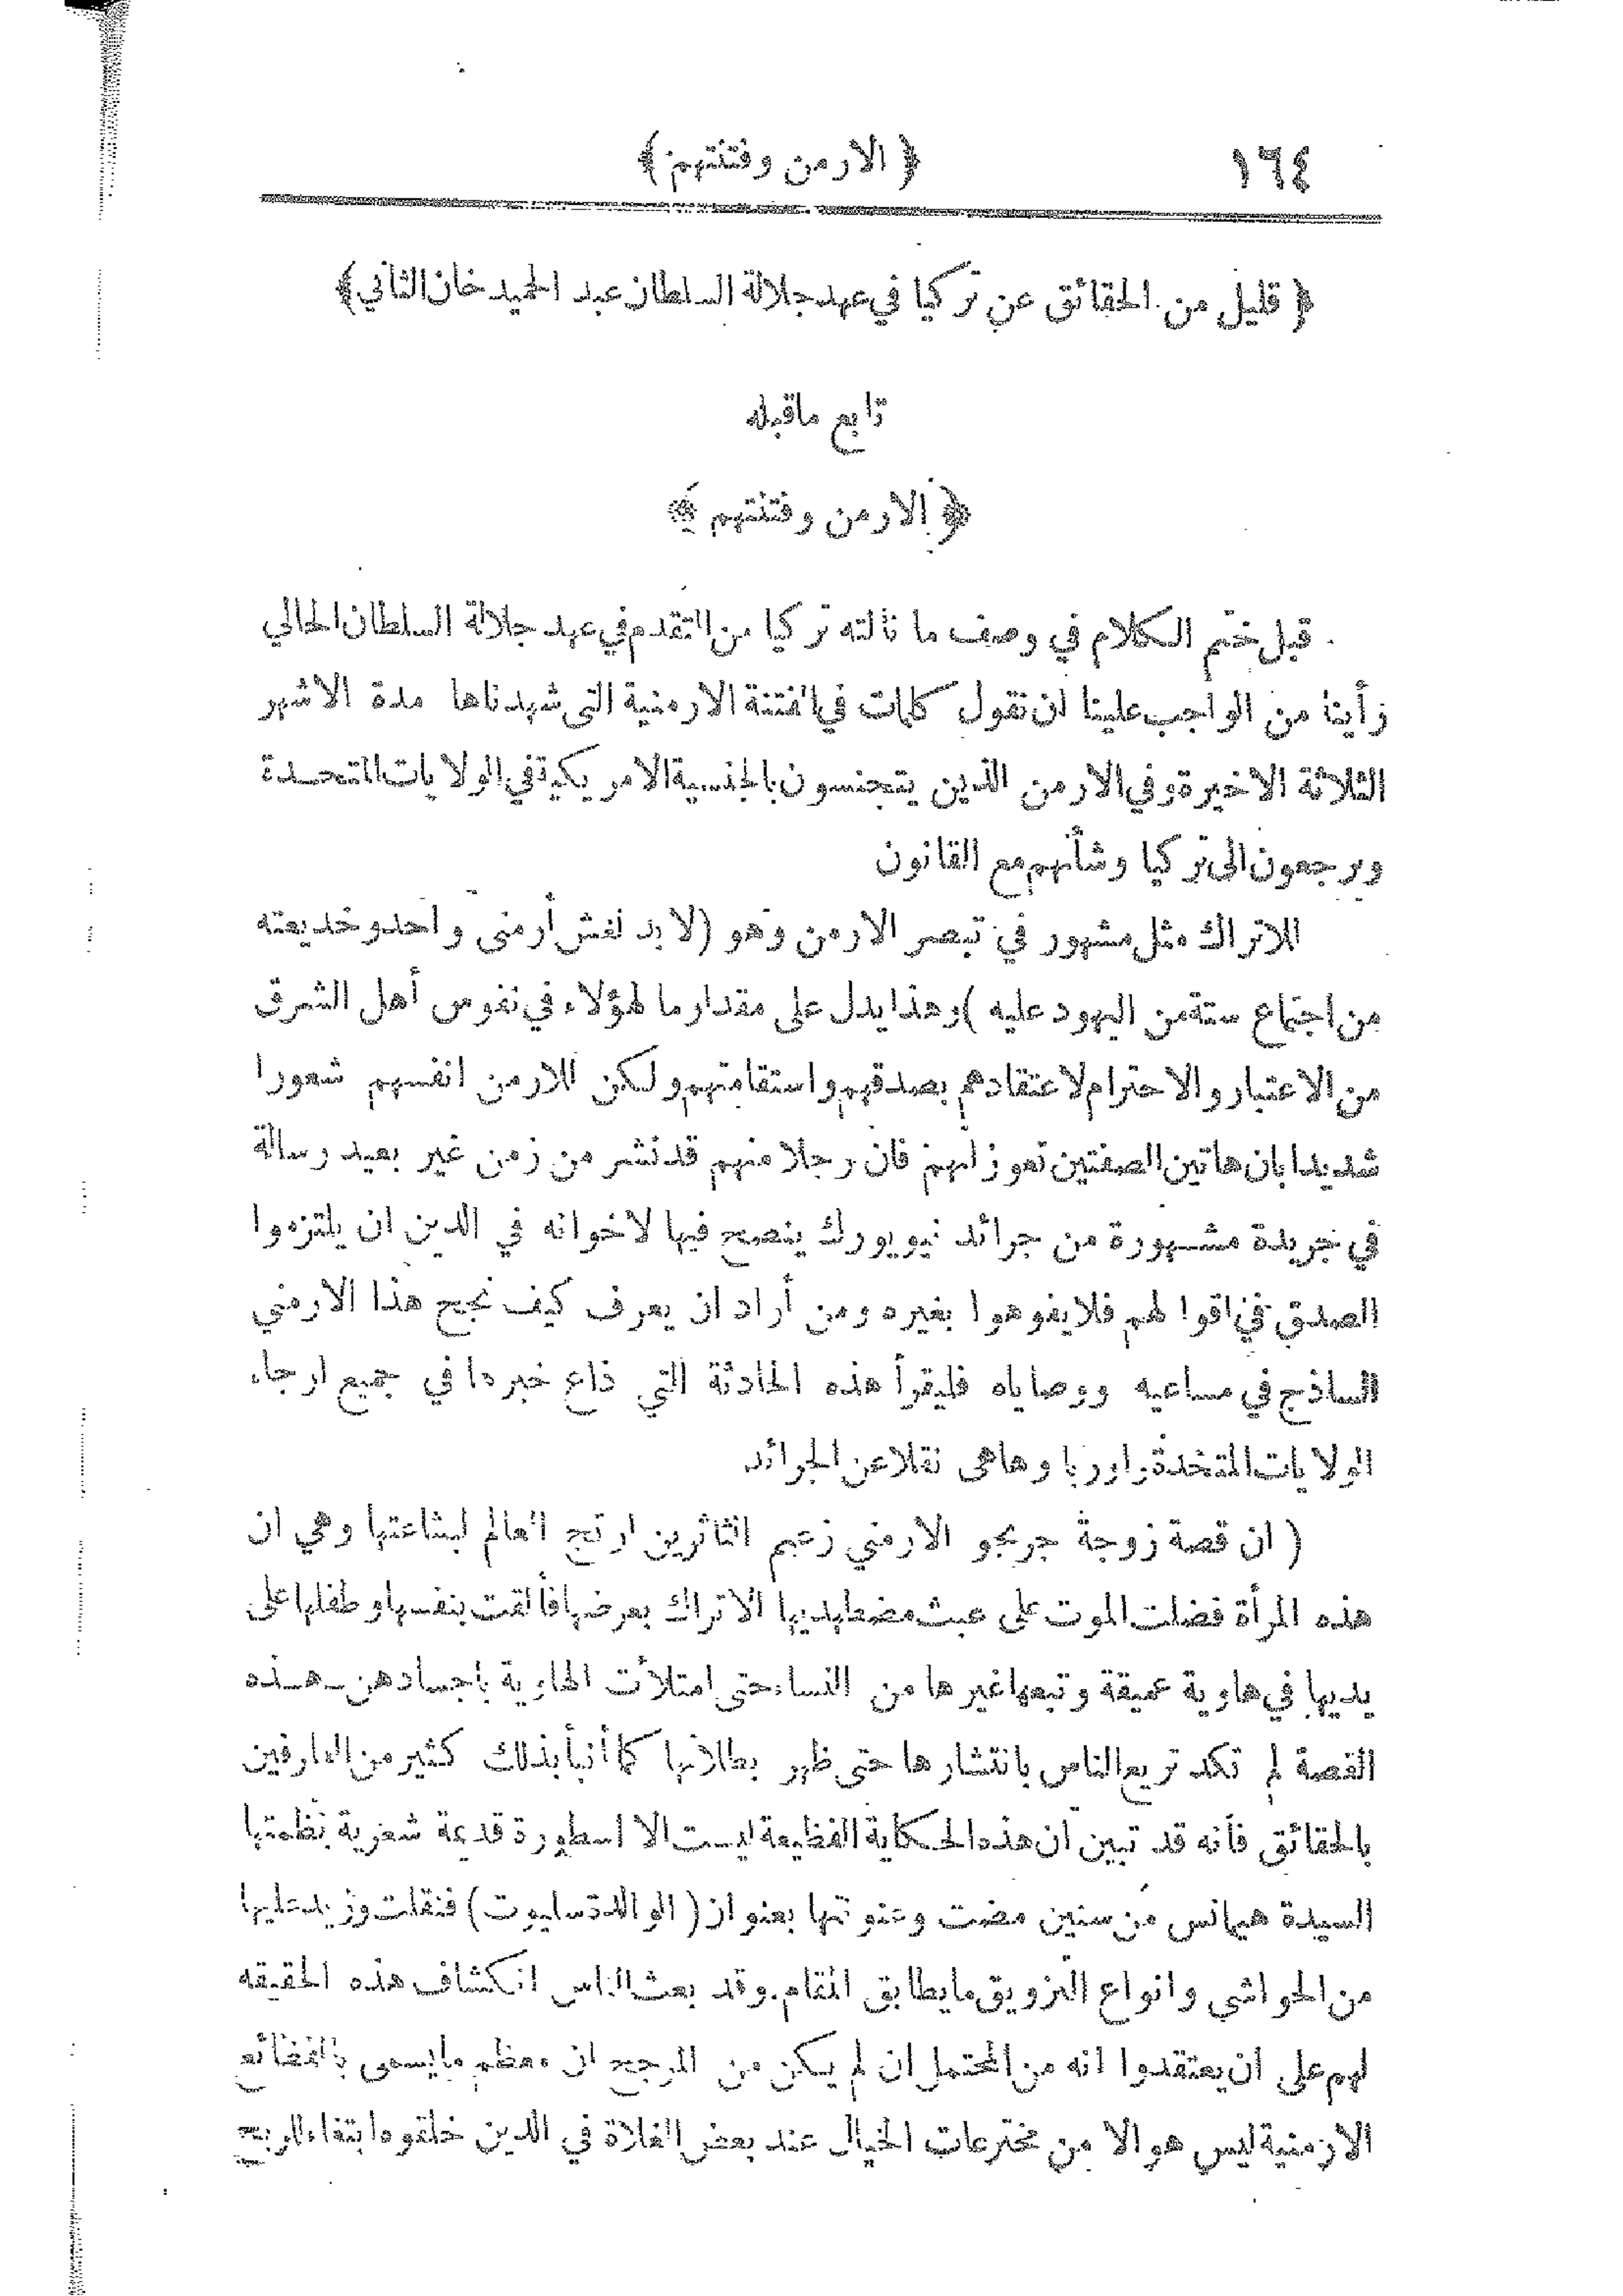 ١٦٤ ﴿ الارمن وفتنتهم ﴾
﴿ قليل من الحقائق عن تركيا في عهد جلالة السلطان عبد الحميد خان الثاني ﴾
تابع ماقبله
﴿ الارمن وفتنتهم ﴾
قبل ختم الكلام في وصف ما نالته تركيا من التقدم في عهد جلالة السلطان الحالي
رأينا من الواجب علينا ان نقول كلمات في الفتنة الارمنية التى شهدناها مدة الاشهر
الثلاثة الاخيرة وفي الارمن الذين يتجنسون بالجنسية الامريكية في الولايات المتحدة
ويرجعون الى تركيا وشأنهم مع القانون
للاتراك مثل مشهور في تبصر الارمن وهو (لا بد لغش أرمنى واحد وخديعته
من اجتماع ستة من اليهود عليه ) وهذا يدل على مقدار ما لهؤلاء في نفوس أهل الشرق
من الاعتبار والاحترام لاعتقادهم بصدقهم واستقامتهم ولكن للارمن انفسهم شعورا
شديدا بان هاتين الصفتين تعوزانهم فان رجلا منهم قد نشر من زمن غير بعيد رسالة
في جريدة مشهورة من جرائد نيويورك ينصح فيها لاخوانه في الدين ان يلتزموا
الصدق في اقوالهم فلا يفوهوا بغيره ومن أراد ان يعرف كيف نجح هذا الارمني
الساذج في مساعيه ووصاياه فليقرأ هذه الحادثة التي ذاع خبرها في جميع ارجاء
الولايات المتحدة واوربا وهاهى نقلا عن الجرائد
( ان قصة زوجة جريجو الارمني زعيم الثائرين ارتج العالم لبشاعتها وهي ان
هذه المرأة فضلت الموت على عبث مضطهديها الاتراك بعرضها فألقت بنفسها وطفلها على
يديها في هاوية عميقة وتبعها غيرها من النساء حتى امتلأت الهاوية باجسادهن ـ هذه
القصة لم تكد تريع الناس بانتشارها حتى ظهر بطلانها كما أنبأ بذلك كثير من العارفين
بالحقائق فأنه قد تبين أن هذه الحكاية الفظيعة ليست الا اسطورة قديمة شعرية نظمتها
السيدة هيمانس من سنين مضت وعنونتها بعنوان ( الوالدة سليوت ) فنقلت وزيد عليها
من الحواشي وانواع التزويق ما يطابق المقام. وقد بعث الناس انكشاف هذه الحقيقه
لهم على ان يعتقدوا انه من المحتمل ان لم يكن من المرجح ان معظم ما يسمى بالفظائع
الارمنية ليس هو الا من مخترعات الخيال عند بعض الغلاة في الدين خلقوه ابتغاء الربح